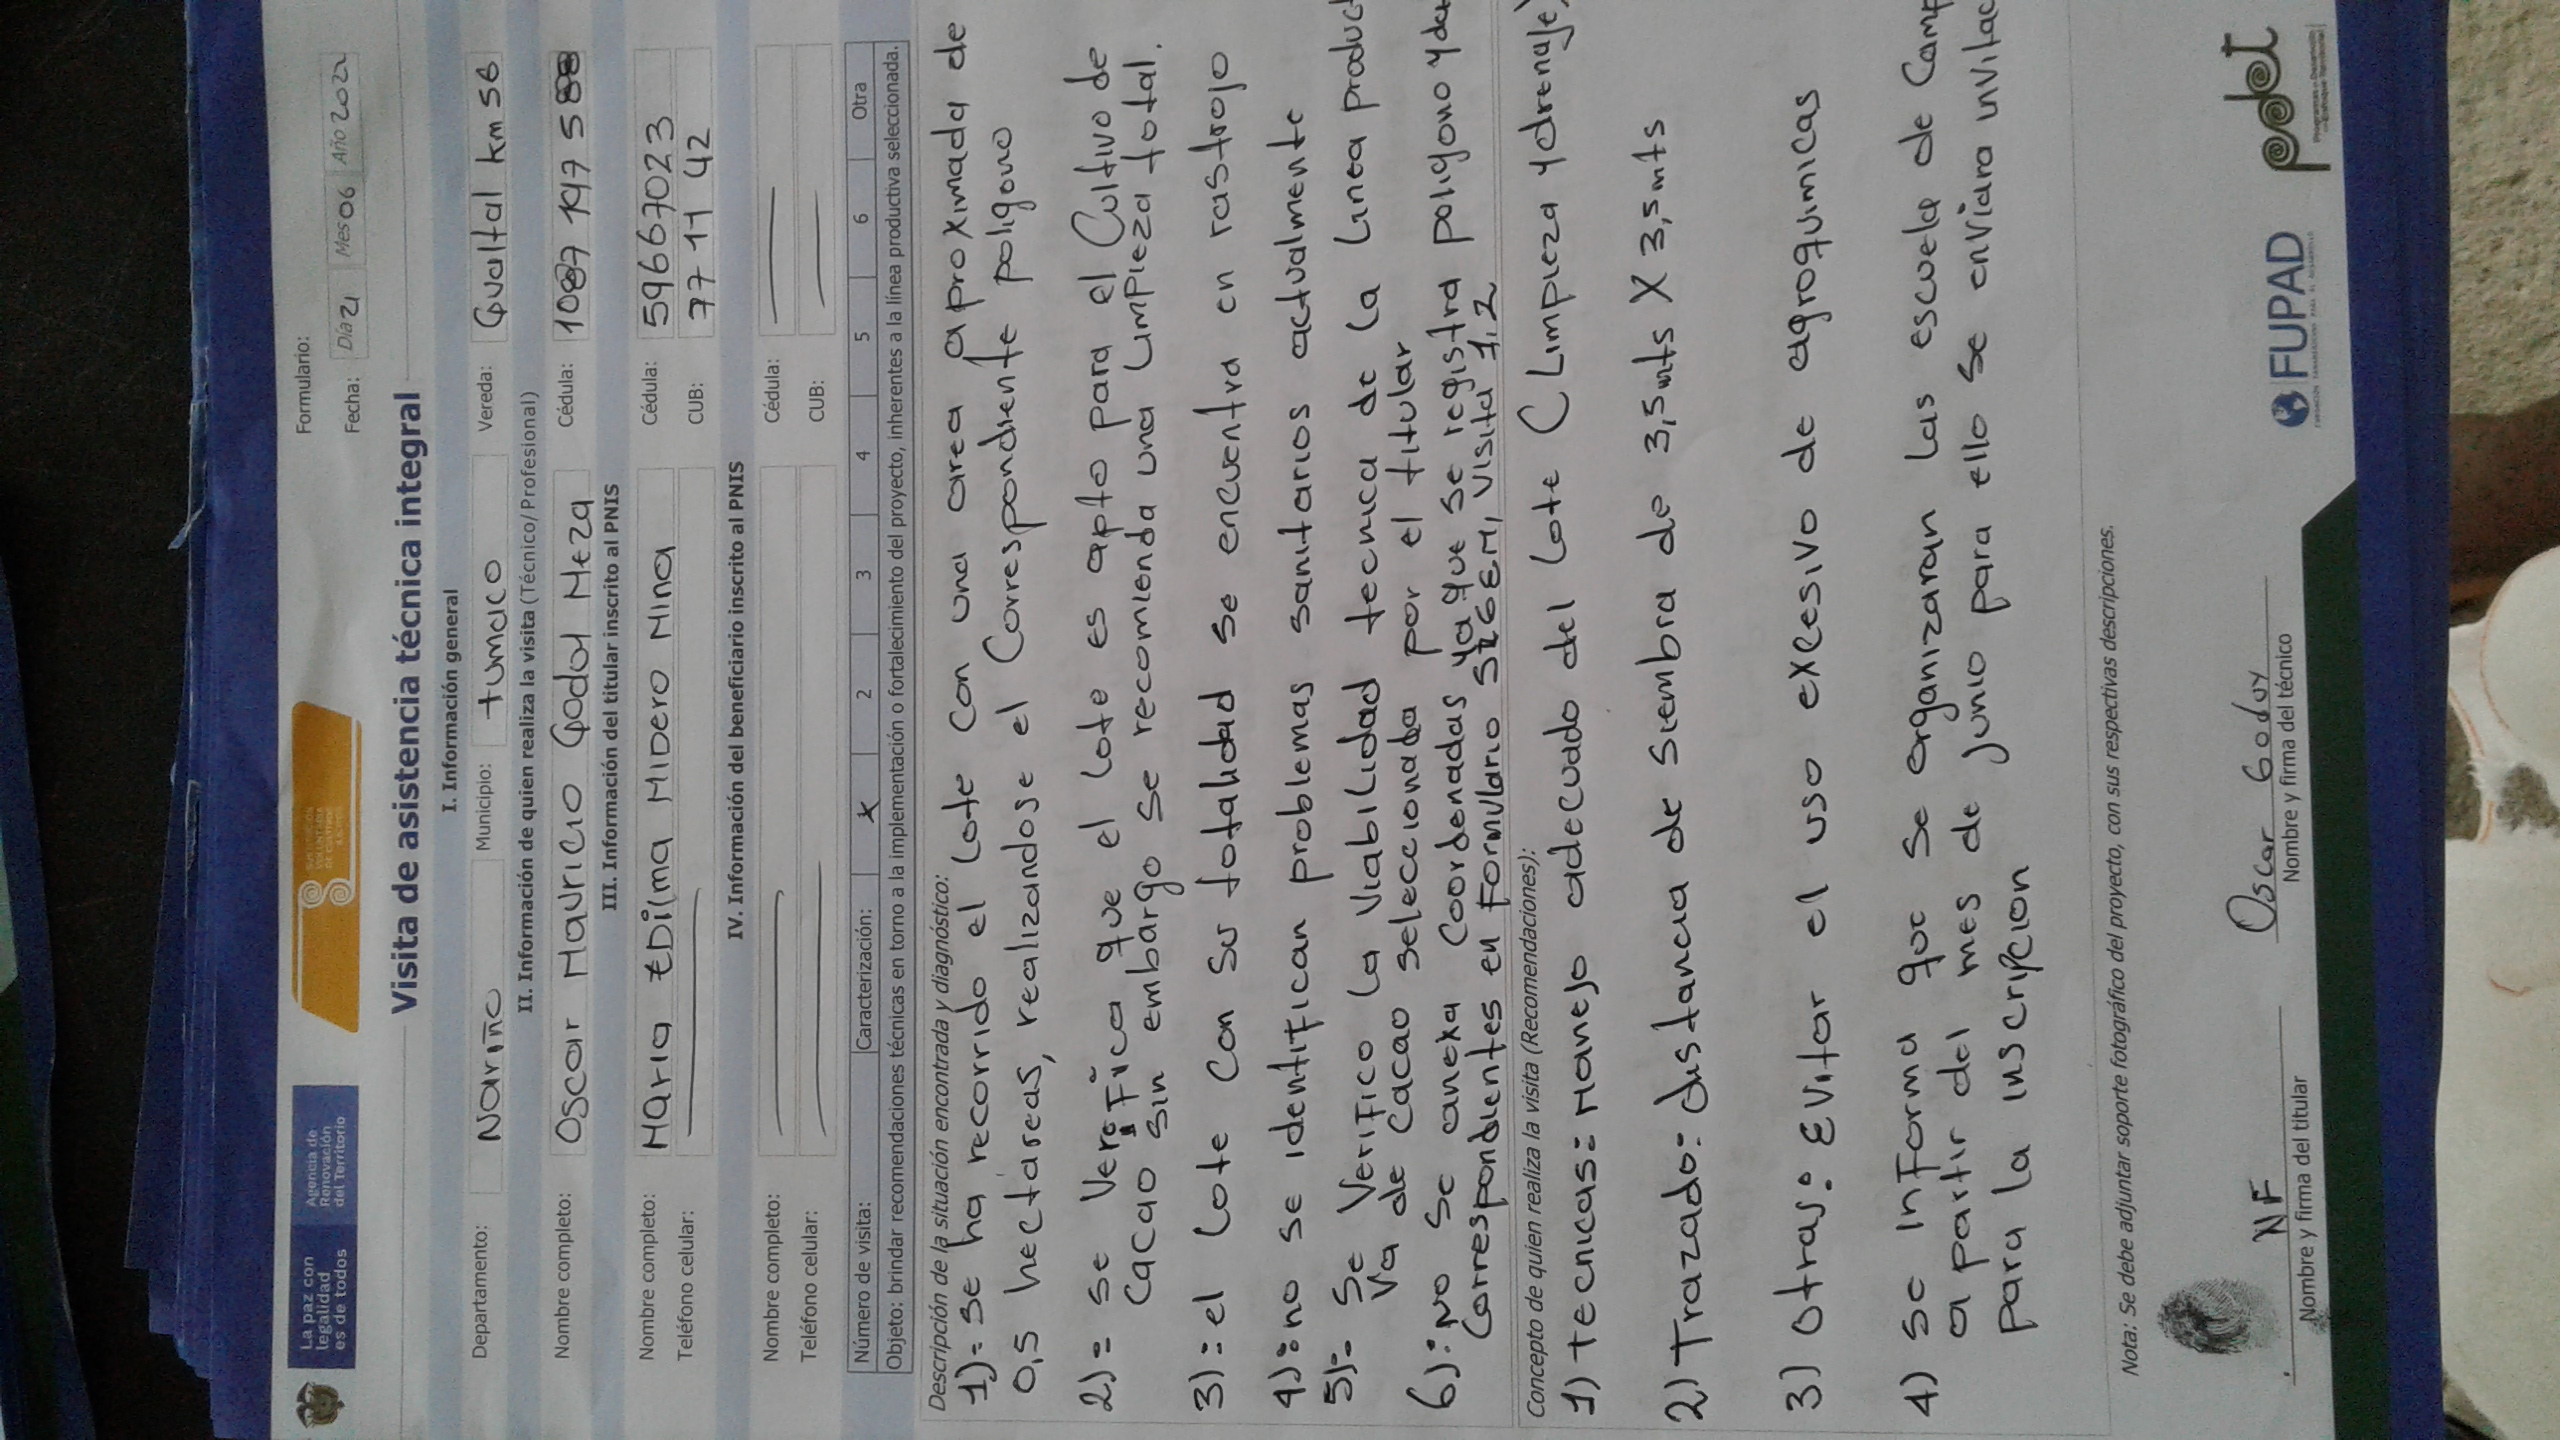 La paz con
legalidad
es de todos
Agencia de
Renovación
del Territorio
SUSTITUCIÓN
VOLUNTARIA
DE CULTIVOS
Formulario:
Fecha: Día 21 Mes 06 Año 2022
Visita de asistencia técnica integral
I. Información general
Departamento: Nariño Municipio: tumaco Vereda: Gualtal km 56
II. Información de quien realiza la visita (Técnico/Profesional)
Nombre completo: Oscar Mauricio Godoy Meza Cédula:
III. Información del titular inscrito al PNIS
Nombre completo: Maria EDilma MIDero Mina Cédula: 59667023
Teléfono celular: CUB: 77 11 42
IV. Información del beneficiario inscrito al PNIS
Nombre completo: Cédula:
Teléfono celular: CUB:
Número de visita: Caracterización: X 2 3 4 5 6 Otra
Objeto: brindar recomendaciones técnicas en torno a la implementación o fortalecimiento del proyecto, inherentes a la línea productiva seleccionada.
Descripción de la situación encontrada y diagnóstico:
1)= se ha recorrido el lote con una area aproximada de
0,5 hectareas, realizandose el correspondiente poligono
2)= se Verifica que el lote es apto para el Cultivo de
Cacao sin embargo se recomienda una limpieza total.
3)= el lote con su totalidad se encuentra en rastrojo
4)= no se identifican problemas sanitarios actualmente
5)= Se Verifico la Viabilidad tecnica de la linea product
de cacao seleccionada por el titular
6)= No se anexa Coordenadas ya que se registra poligono y
Correspondientes en Formulario visita 1,2
Concepto de quien realiza la visita (Recomendaciones):
1) tecnicas= Manejo adecuado del lote (Limpieza y drenaje)
2) Trazado: distancia de siembra de 3,5 mts X 3,5 mts
3) Otras: Evitar el uso excesivo de agroquimicas
4) Se informa que se organizaran las escuela de Camp
a partir del mes de junio para ello se enviara invitac
para la inscripcion
Nota: Se debe adjuntar soporte fotográfico del proyecto, con sus respectivas descripciones.
NF
Nombre y firma del titular
Oscar Godoy
Nombre y firma del técnico
FUPAD
pdet